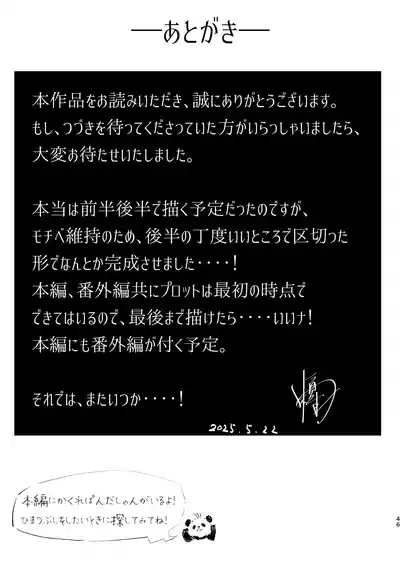 ―あとがき―
本作品をお読みいただき、誠にありがとうございます。
もし、つづきを待ってくださっていた方がいらっしゃいましたら、
大変お待たせいたしました。
本当は前半後半で描く予定だったのですが、
モチベ維持のため、後半の丁度いいところで区切った
形でなんとか完成させました・・・・！
本編、番外編共にプロットは最初の時点で
できてはいるので、最後まで描けたら・・・・いいナ！
本編にも番外編が付く予定。
それでは、またいつか・・・・！
2025.5.22
本編にかくれぱんだしゃんがいるよ！
ひまつぶしをしたいときに探してみてね！
46